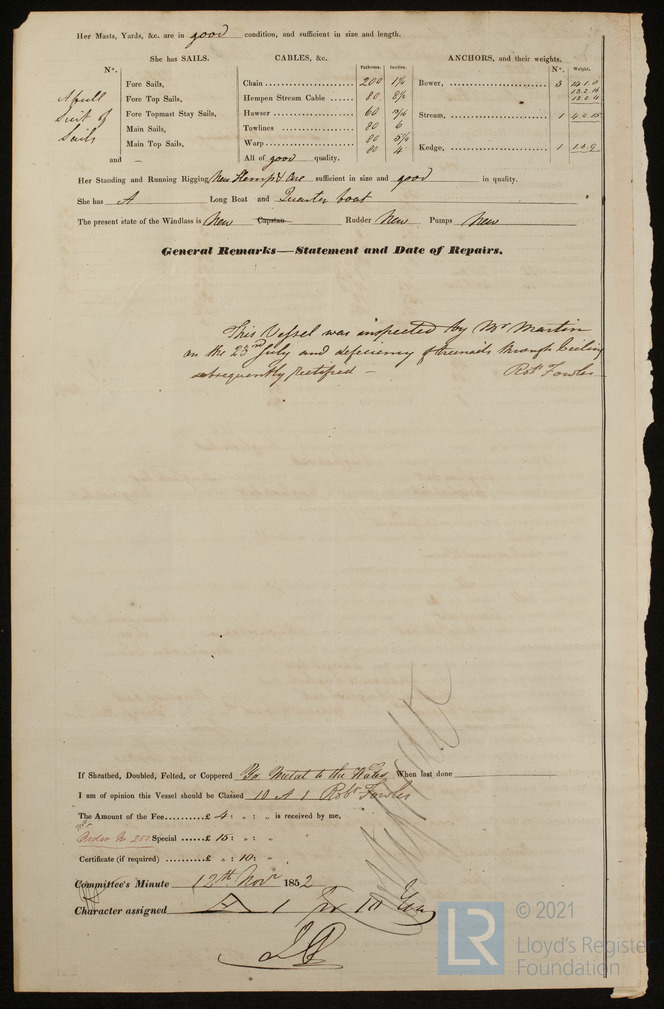 Her Masts, Yards, &c. are in good condition, and sufficient in size and length.
She has SAILS. CABLES, &c. ANCHORS, and their weights.
N°. Fathoms. Inches. N°. Weight.
A full Suit of Sails
Fore Sails, Chain 200 Bower, 3 14.1.0
13.2.16
Fore Top Sails, Hempen Stream Cable 80 8½ 13.0.4
Fore Topmast Stay Sails, Hawser 60 Stream, 1 4.0.15
Main Sails, Towlines 80 6
Main Top Sails, Warp 80 5½
80 4 Kedge, 1
and – All of good quality.
Her Standing and Running Rigging New Hemp & are sufficient in size and good in quality.
She has A Long Boat and Quarter boat
The present state of the Windlass is New Capstan Rudder New Pumps New
General Remarks—Statement and Date of Repairs.
This Vessel was inspected by Mr Martin
on the 23rd July and deficiency of treenails through Ceiling
subsequently rectified – Robt Fowler
If Sheathed, Doubled, Felted, or Coppered Yr. Metal to the Wales When last done
I am of opinion this Vessel should be Classed 10 A 1 Robt Fowler
The Amount of the Fee £ 4 : „ : „ is received by me,
Order No. 255 Special £ 15 : „ : „
Certificate (if required) £ „ : 10 : „
Committee's Minute 12th Novr 1852
Character assigned A 1 for 10 Yrs
© 2021
LR
Lloyd's Register
Foundation